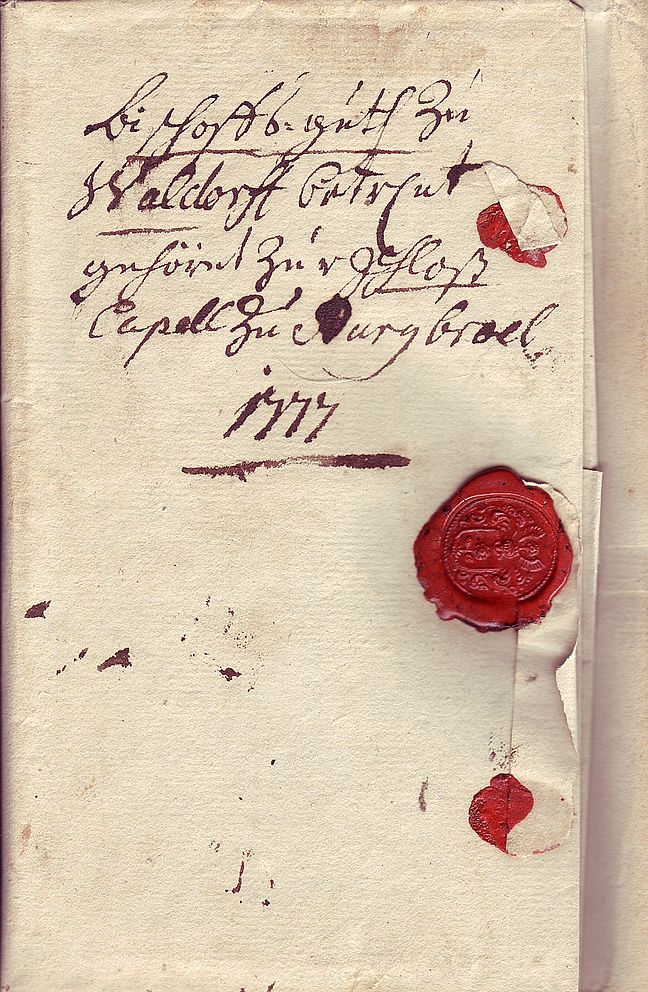 bischoffs=guth zu
Waldorff betrent
gehöret zur schloß
Capell zu Burgbroel
1777